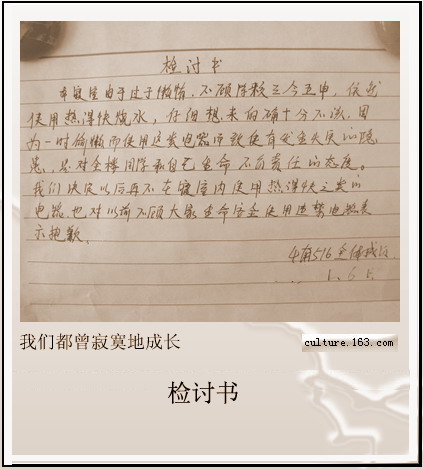 检讨书
本寝室由于过于懒惰，不顾学校三令五申，依然
使用热得快烧水，仔细想来的确十分不该，因
为一时偷懒而使用这类电器而致使有发生火灾的隐
患，是对全楼同学和自己生命不负责任的态度。
我们决定以后再不在寝室内使用热得快之类的
电器，也对以前不顾大家生命安全使用违禁电器表
示抱歉。
516全体成员
我们都曾寂寞地成长
culture.163.com
检讨书